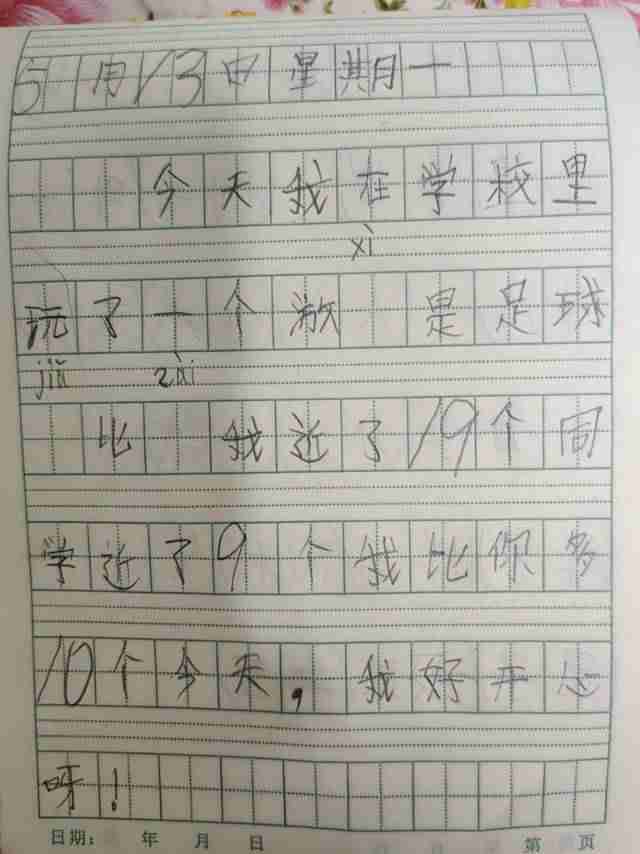 5月13日星期一
今天我在学校里
xì
玩了一个游 是足球
jiǔ zài
比 我近了19个同
学近了9个我比你多
10个今天，我好开心
呀！
日期： 年 月 日 第 页